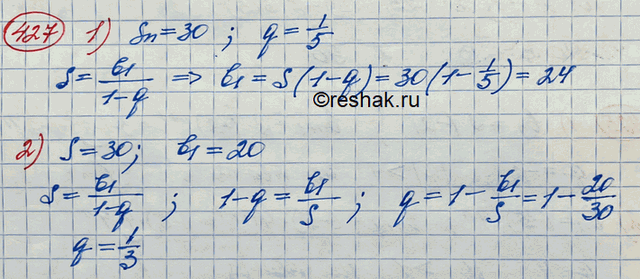 427 1) Sn = 30 ; q = 1/5
S = b1/(1-q) => b1 = S(1-q) = 30(1-1/5) = 24
©reshak.ru
2) S = 30; b1 = 20
S = b1/(1-q) ; 1-q = b1/S ; q = 1 - b1/S = 1 - 20/30
q = 1/3